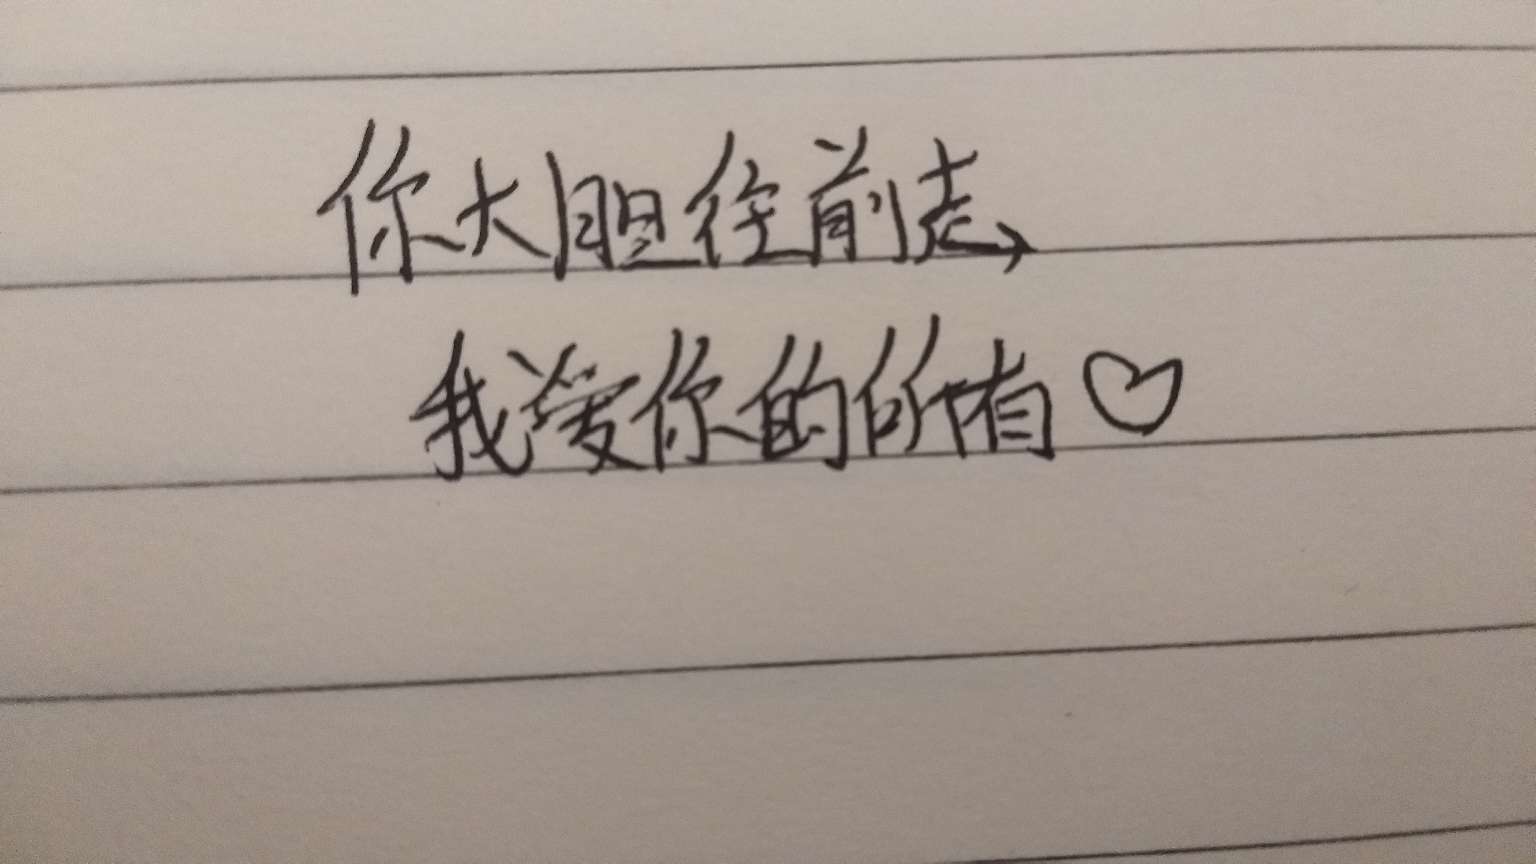 你大胆往前走
我爱你的所有♡